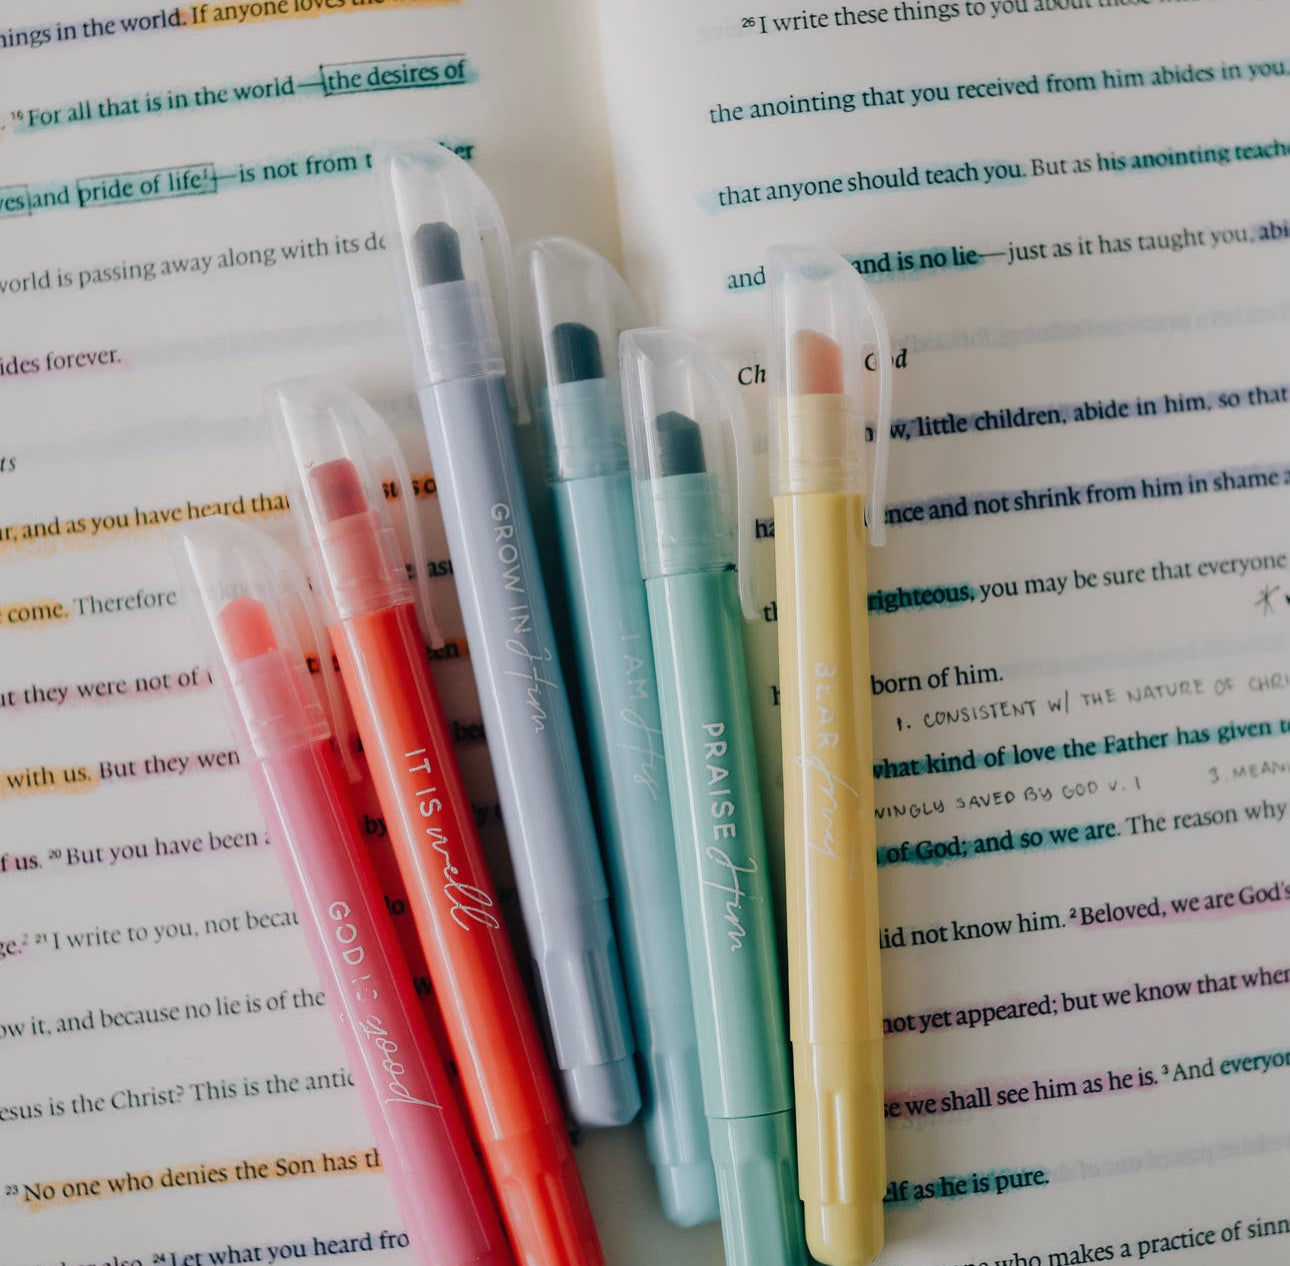 things in the world. If anyone loves the
16 For all that is in the world—the desires of
and pride of life—is not from t
world is passing away along with its de
ides forever.
ts
r, and as you have heard that
come. Therefore
ut they were not of
with us. But they wen
f us. 20 But you have been
ge. 21 I write to you, not becau
ow it, and because no lie is of the
esus is the Christ? This is the antic
23 No one who denies the Son has th
24 Let what you heard fro
26 I write these things to you about those
the anointing that you received from him abides in you,
that anyone should teach you. But as his anointing teach
and and is no lie—just as it has taught you, abi
Ch God
w, little children, abide in him, so that
ence and not shrink from him in shame
righteous, you may be sure that everyone
born of him.
1. CONSISTENT W/ THE NATURE OF CHRI
what kind of love the Father has given t
VINGLY SAVED BY GOD V. 1 3. MEAN
of God; and so we are. The reason why
did not know him. 2 Beloved, we are God's
not yet appeared; but we know that when
se we shall see him as he is. 3 And everyon
elf as he is pure.
one who makes a practice of sinn
GOD IS good
IT IS well
GROW IN Him
I AM His
PRAISE Him
BEAR fruit